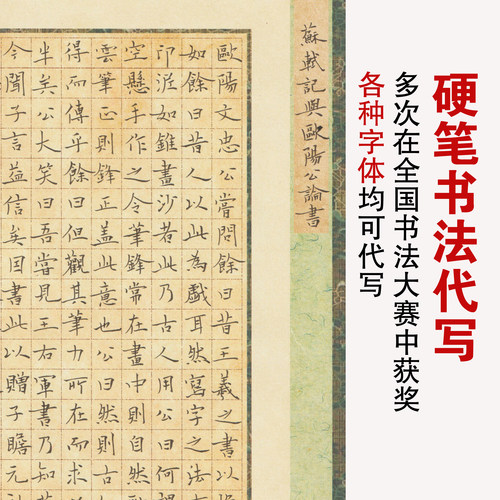 硬笔书法代写
多次在全国书法大赛中获奖
各种字体均可代写
蘇軾記與歐陽公論書
歐陽文忠公嘗問餘曰昔王羲之書以
如餘曰昔人以此為戲耳然寫字之法
印泥如錐畫沙若此乃古人用公曰何
空懸手作之令筆鋒常在畫中則自然
雲筆正則鋒正蓋此意也公曰然則古
得而傳乎餘曰但觀其筆力所在而求
半矣公大笑曰吾嘗見王右軍書乃知
今聞子言益信矣因書此以贈子瞻元